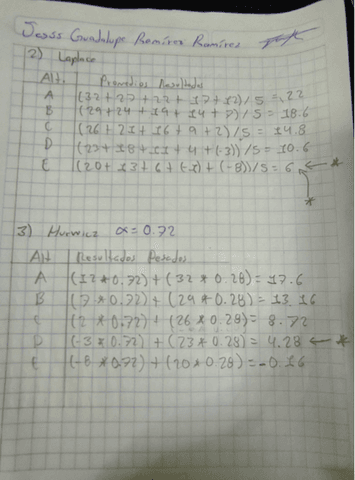 Jesús Guadalupe Ramírez Ramírez
2) Laplace
Alt. Promedios Resultados
A (32+27+22+17+12)/5 = 22
B (29+24+19+14+7)/5 = 18.6
C (26+21+16+9+2)/5 = 14.8
D (23+18+11+4+(-3))/5 = 10.6
E (20+13+6+(-1)+(-8))/5 = 6 ← *
*
3) Hurwicz α = 0.72
Alt Resultados Pesados
A (12*0.72)+(32*0.28) = 17.6
B (7*0.72)+(29*0.28) = 13.16
C (2*0.72)+(26*0.28) = 8.72
D (-3*0.72)+(23*0.28) = 4.28 ← *
E (-8*0.72)+(20*0.28) = -0.16